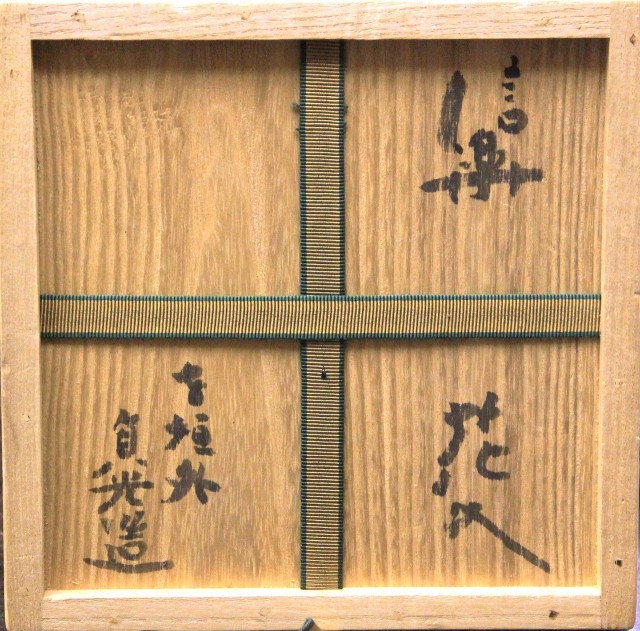 信楽
花入
垣外
自光造